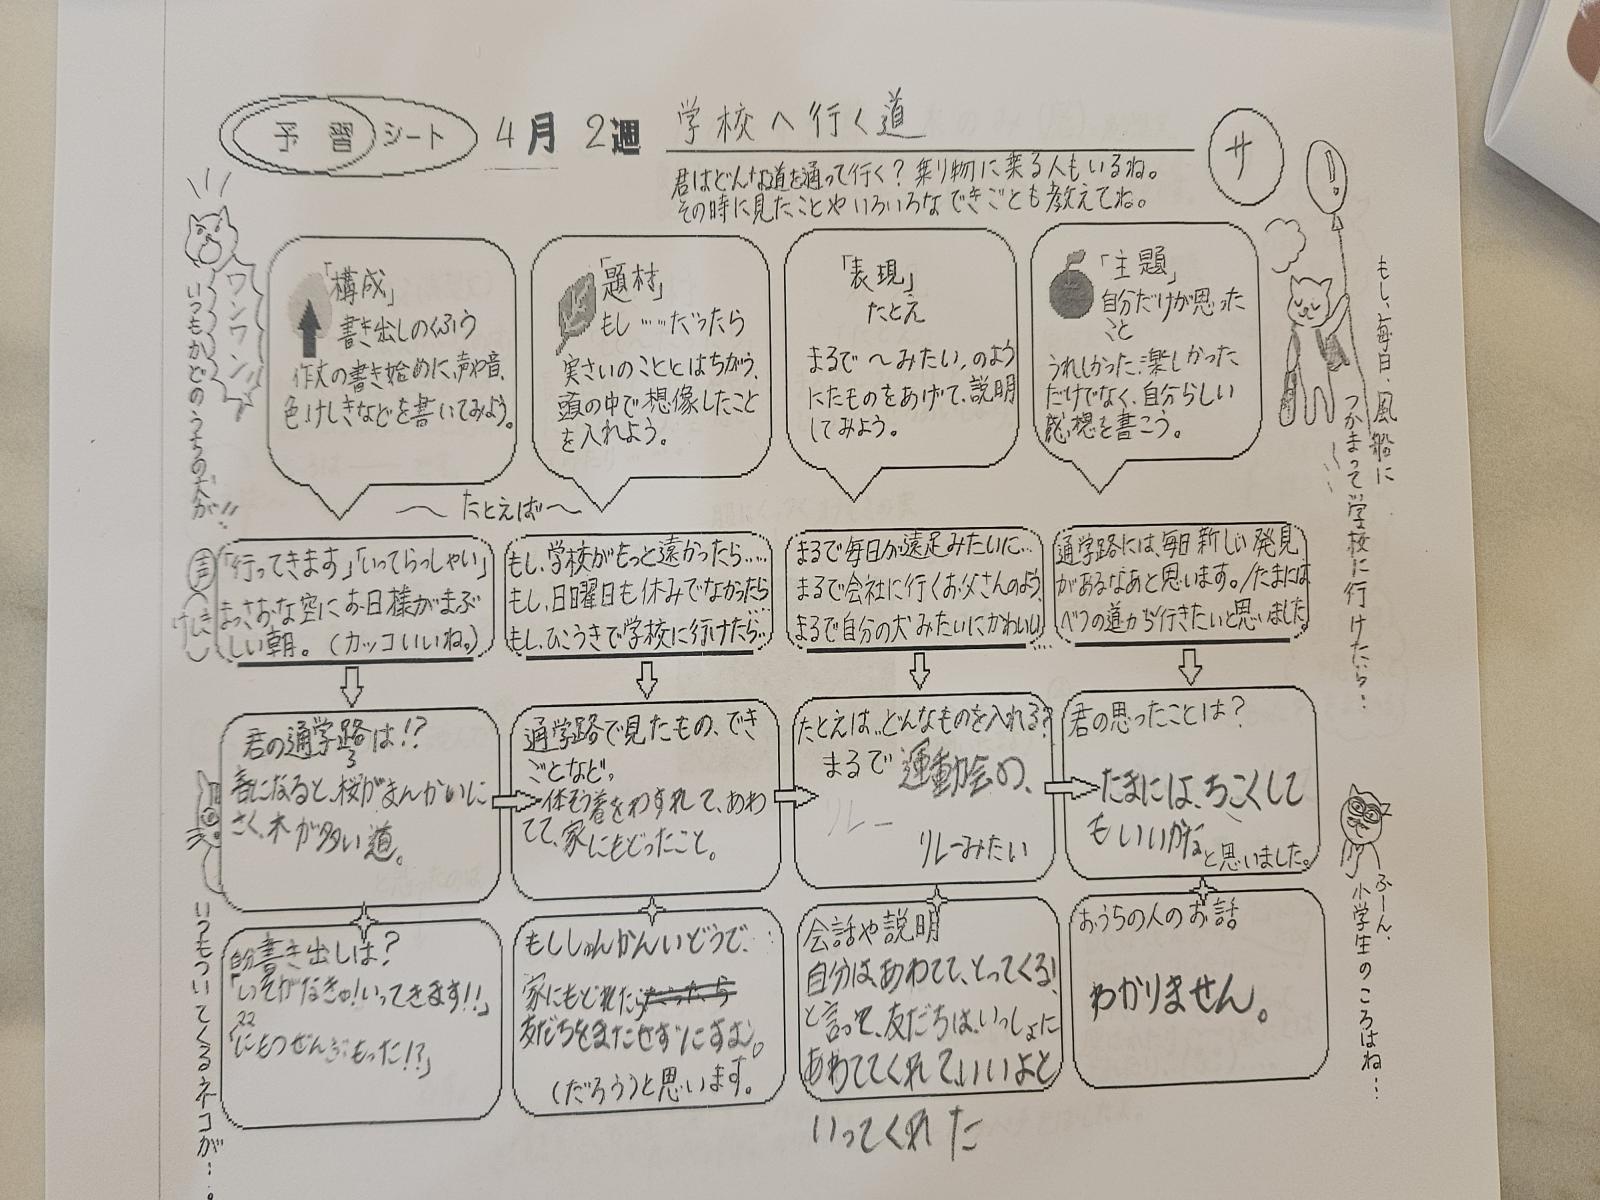 予習シート 4月 2週 学校へ行く道
サ
君はどんな道を通って行く？乗り物に乗る人もいるね。
その時に見たことやいろいろなできごとも教えてね。
「構成」
書き出しのくふう
作文の書き始めに、声や音、
色、けしきなどを書いてみよう。
「題材」
もし……だったら
実さいのこととはちがう、
頭の中で想像したこと
を入れよう。
「表現」
たとえ
まるで〜みたい、のよう
にたものをあげて、説明
してみよう。
「主題」
自分だけが思った
こと
うれしかった、楽しかった
だけでなく、自分らしい
感想を書こう。
〜たとえば〜
声
けしき
「行ってきます」「いってらっしゃい」
まっさおな空にお日様がまぶ
しい朝。（カッコいいね。）
もし、学校がもっと遠かったら……
もし、日曜日も休みでなかったら…
もし、ひこうきで学校に行けたら…
まるで毎日が遠足みたいに…
まるで会社に行くお父さんのよう、
まるで自分の犬みたいにかわいい…
通学路には、毎日新しい発見
があるなあと思います。/たまには
べつの道から行きたいと思いました。
君の通学路は!?
ろ
春になると、桜がまんかいに
さく、木が多い道。
通学路で見たもの、でき
ごとなど。
体そう着をわすれて、あわ
てて、家にもどったこと。
たとえば…どんなものを入れる？
まるで 運動会の、
リレー
リレーみたい
君の思ったことは？
たまには、ちこくして
もいいかなと思いました。
自分
書き出しは？
「いそがなきゃ！いってきます!!」
「にもつぜんぶもった!?」
もししゅんかんいどうで、
家にもどれたら
友だちをまたせずにすむ。
（だろう）と思います。
会話や説明
自分は、あわてて、とってくる！
と言って、友だちは、いっしょに
あわててくれて、いいよと
いってくれた
おうちの人のお話
わかりません。
ワンワン!!
いつもかどのうちの犬が!!
いつもついてくるネコが…。
もし、毎日、風船に
つかまって学校に行けたら…
ふーん、
小学生のころはね…